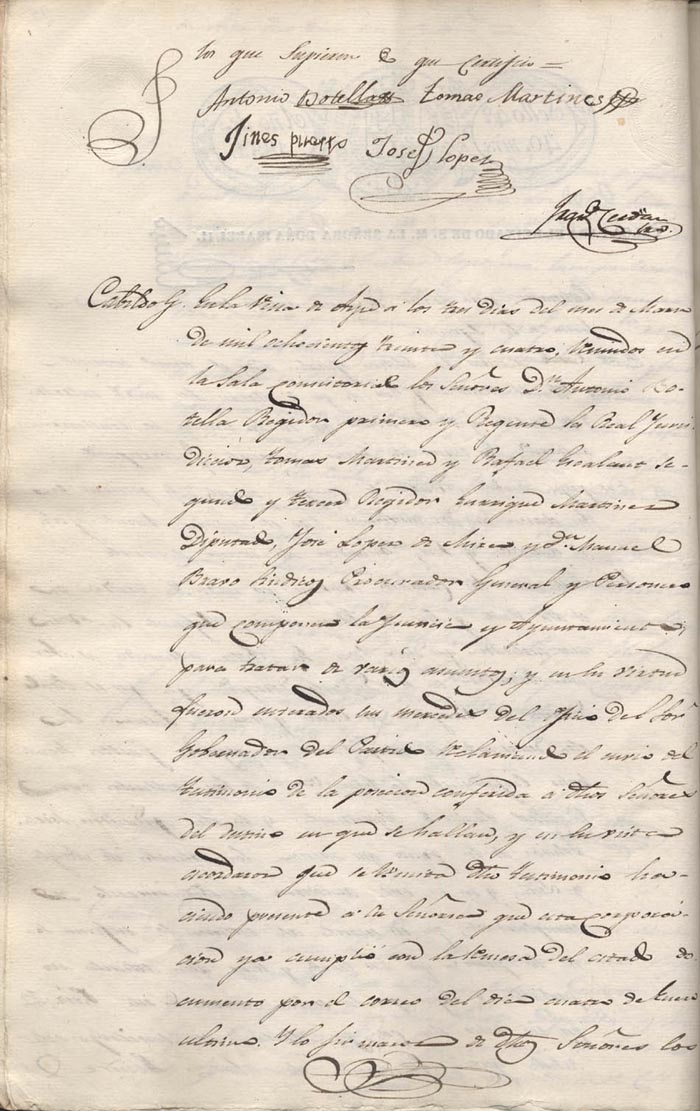 los que Supieron de que Certifico =
Antonio Botella Tomas Martines
Jines pirez Josef Lopez
Cabildo En la Villa de Aspe á los tres dias del mes de Marzo
de mil ochocientos treinta y cuatro, reunidos en
la Sala consistorial los Señores Dn. Antonio Bo-
tella Regidor primero y Regente la Real Juris-
diccion, Tomas Martinez y Rafael Gralant se-
gundo y tercer Regidor Enrrique Martinez
Diputado, José Lopez de Mira y Dn. Manuel
Bravo Sindicos Procurador General y Personero
que componen la Justicia y Ayuntamiento,
para tratar de varios asuntos; y en su virtud
fueron enterados sus mercedes del oficio del Sor.
Gobernador del Partido reclamando el envio del
testimonio de la posicion conferida a dhos Señores
del destino en que se hallan, y en su vista
acordaron que se remita dho testimonio ha-
ciendo presente á su Señoria que esta corpora-
cion ya cumplió con la remesa del citado do-
cumento por el correo del dia cuatro de Enero
ultimo. Y lo firmaron de dhos Señores los